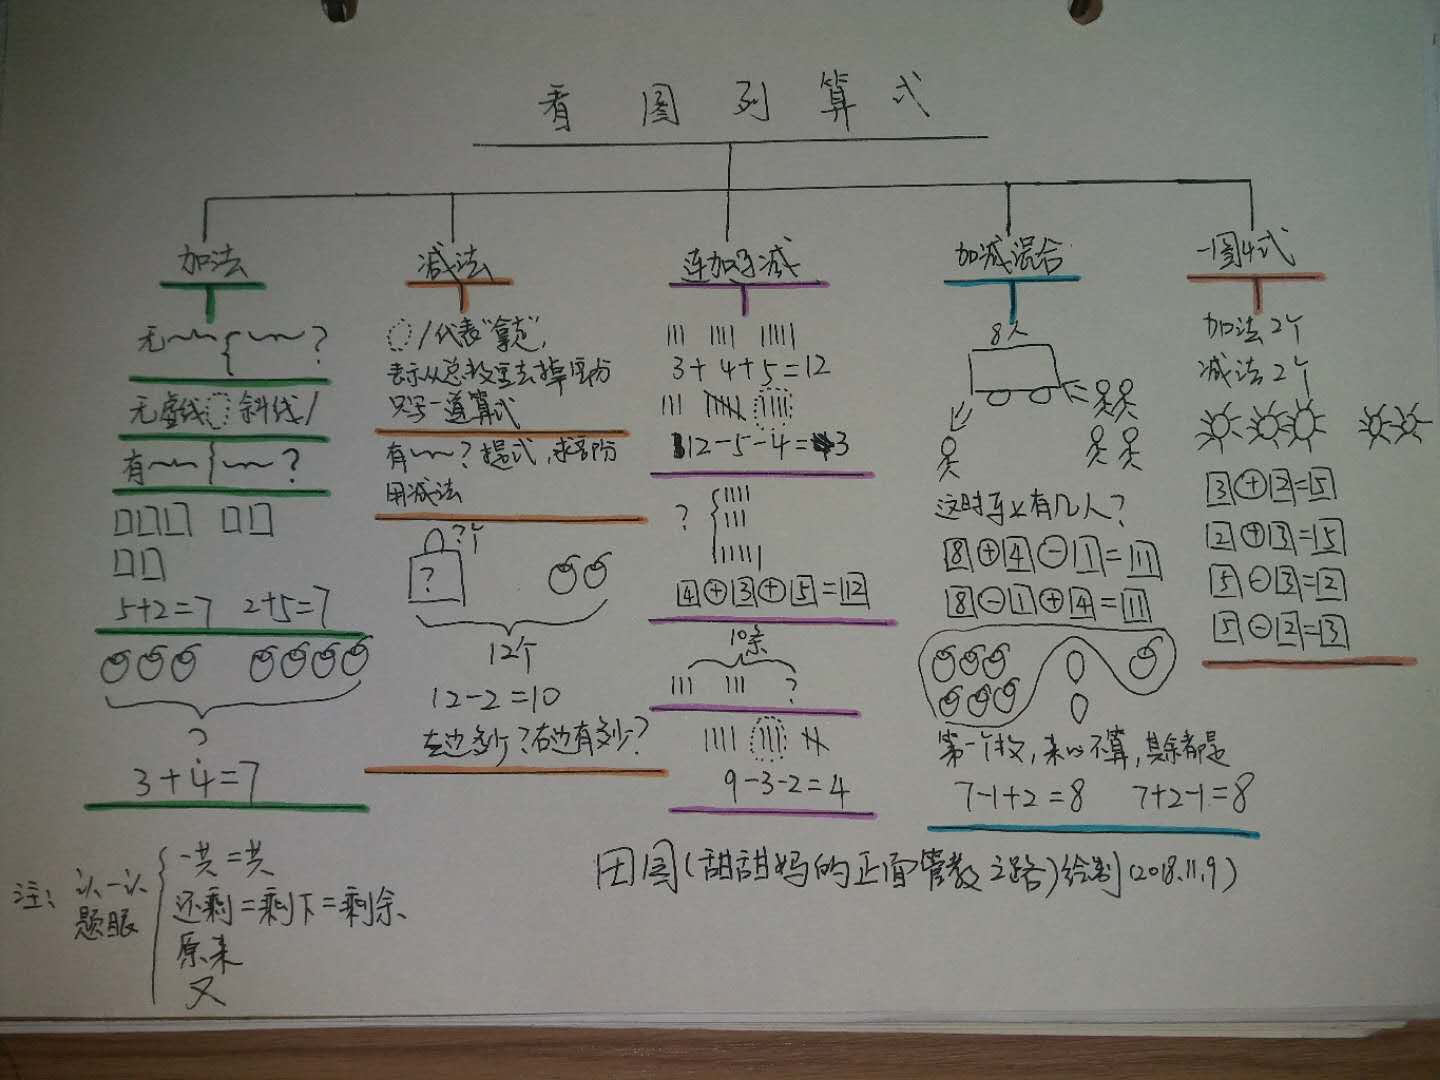 看图列算式
加法
无﹏{﹏?
无虚线 斜线/
有﹏{﹏?
5+2=7 2+5=7
?
3+4=7
减法
/代表"拿走",
表示从总数里去掉部分
只写一道算式
有﹏?提式,求部分
用减法
?个
?
12个
12-2=10
左边多少?右边有多少?
连加连减
3+4+5=12
12-5-4=3
?
4+3+5=12
10条
?
9-3-2=4
加减混合
8人
这时车上有几人?
8+4-1=11
8-1+4=11
第一个数,来的不算,其余都是
7-1+2=8 7+2-1=8
一图4式
加法2个
减法2个
3+2=5
2+3=5
5-3=2
5-2=3
注: 认一认
题眼
一共=共
还剩=剩下=剩余
原来
又
田园(甜甜妈的正面管教之路)绘制(2018.11.9)